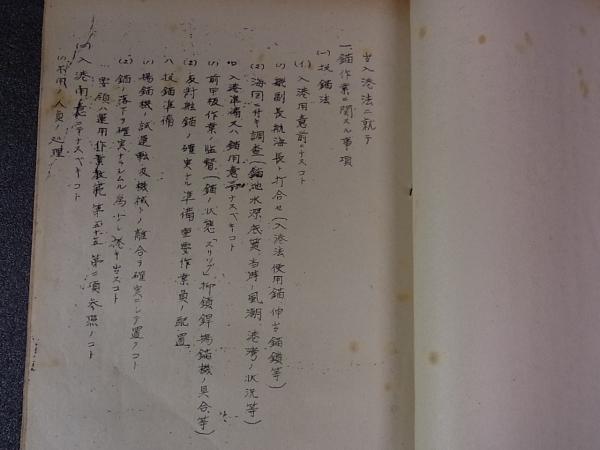 出入港法ニ就テ
一錨作業ニ関スル事項
(一)投錨法
(イ)入港用意前ニナスコト
(1)艦副長航海長ト打合セ(入港法使用錨、伸出錨鎖等)
(2)海図ニ付キ調査(錨地水深底質、当時ノ風潮、港湾ノ状況等)
ロ、入港準備又ハ錨用意前ナスベキコト
(1)前甲板作業ノ監督(錨ノ状態「スリップ」抑鎖鐶揚錨機ノ具合等)
(2)反対舷錨ノ確実ナル準備重要作業員ノ配置
ハ、投錨準備
(1)揚錨機ノ試運転及機械トノ離合ヲ確実ニシテ置クコト
(2)錨ノ落下ヲ確実ナラシムル為少シ繰キ出スコト
要領ハ運用作業教範第五十五 第二項参照ノコト
(ニ)入港用意ニテナスベキコト
(1)不用ノ人員ノ処理